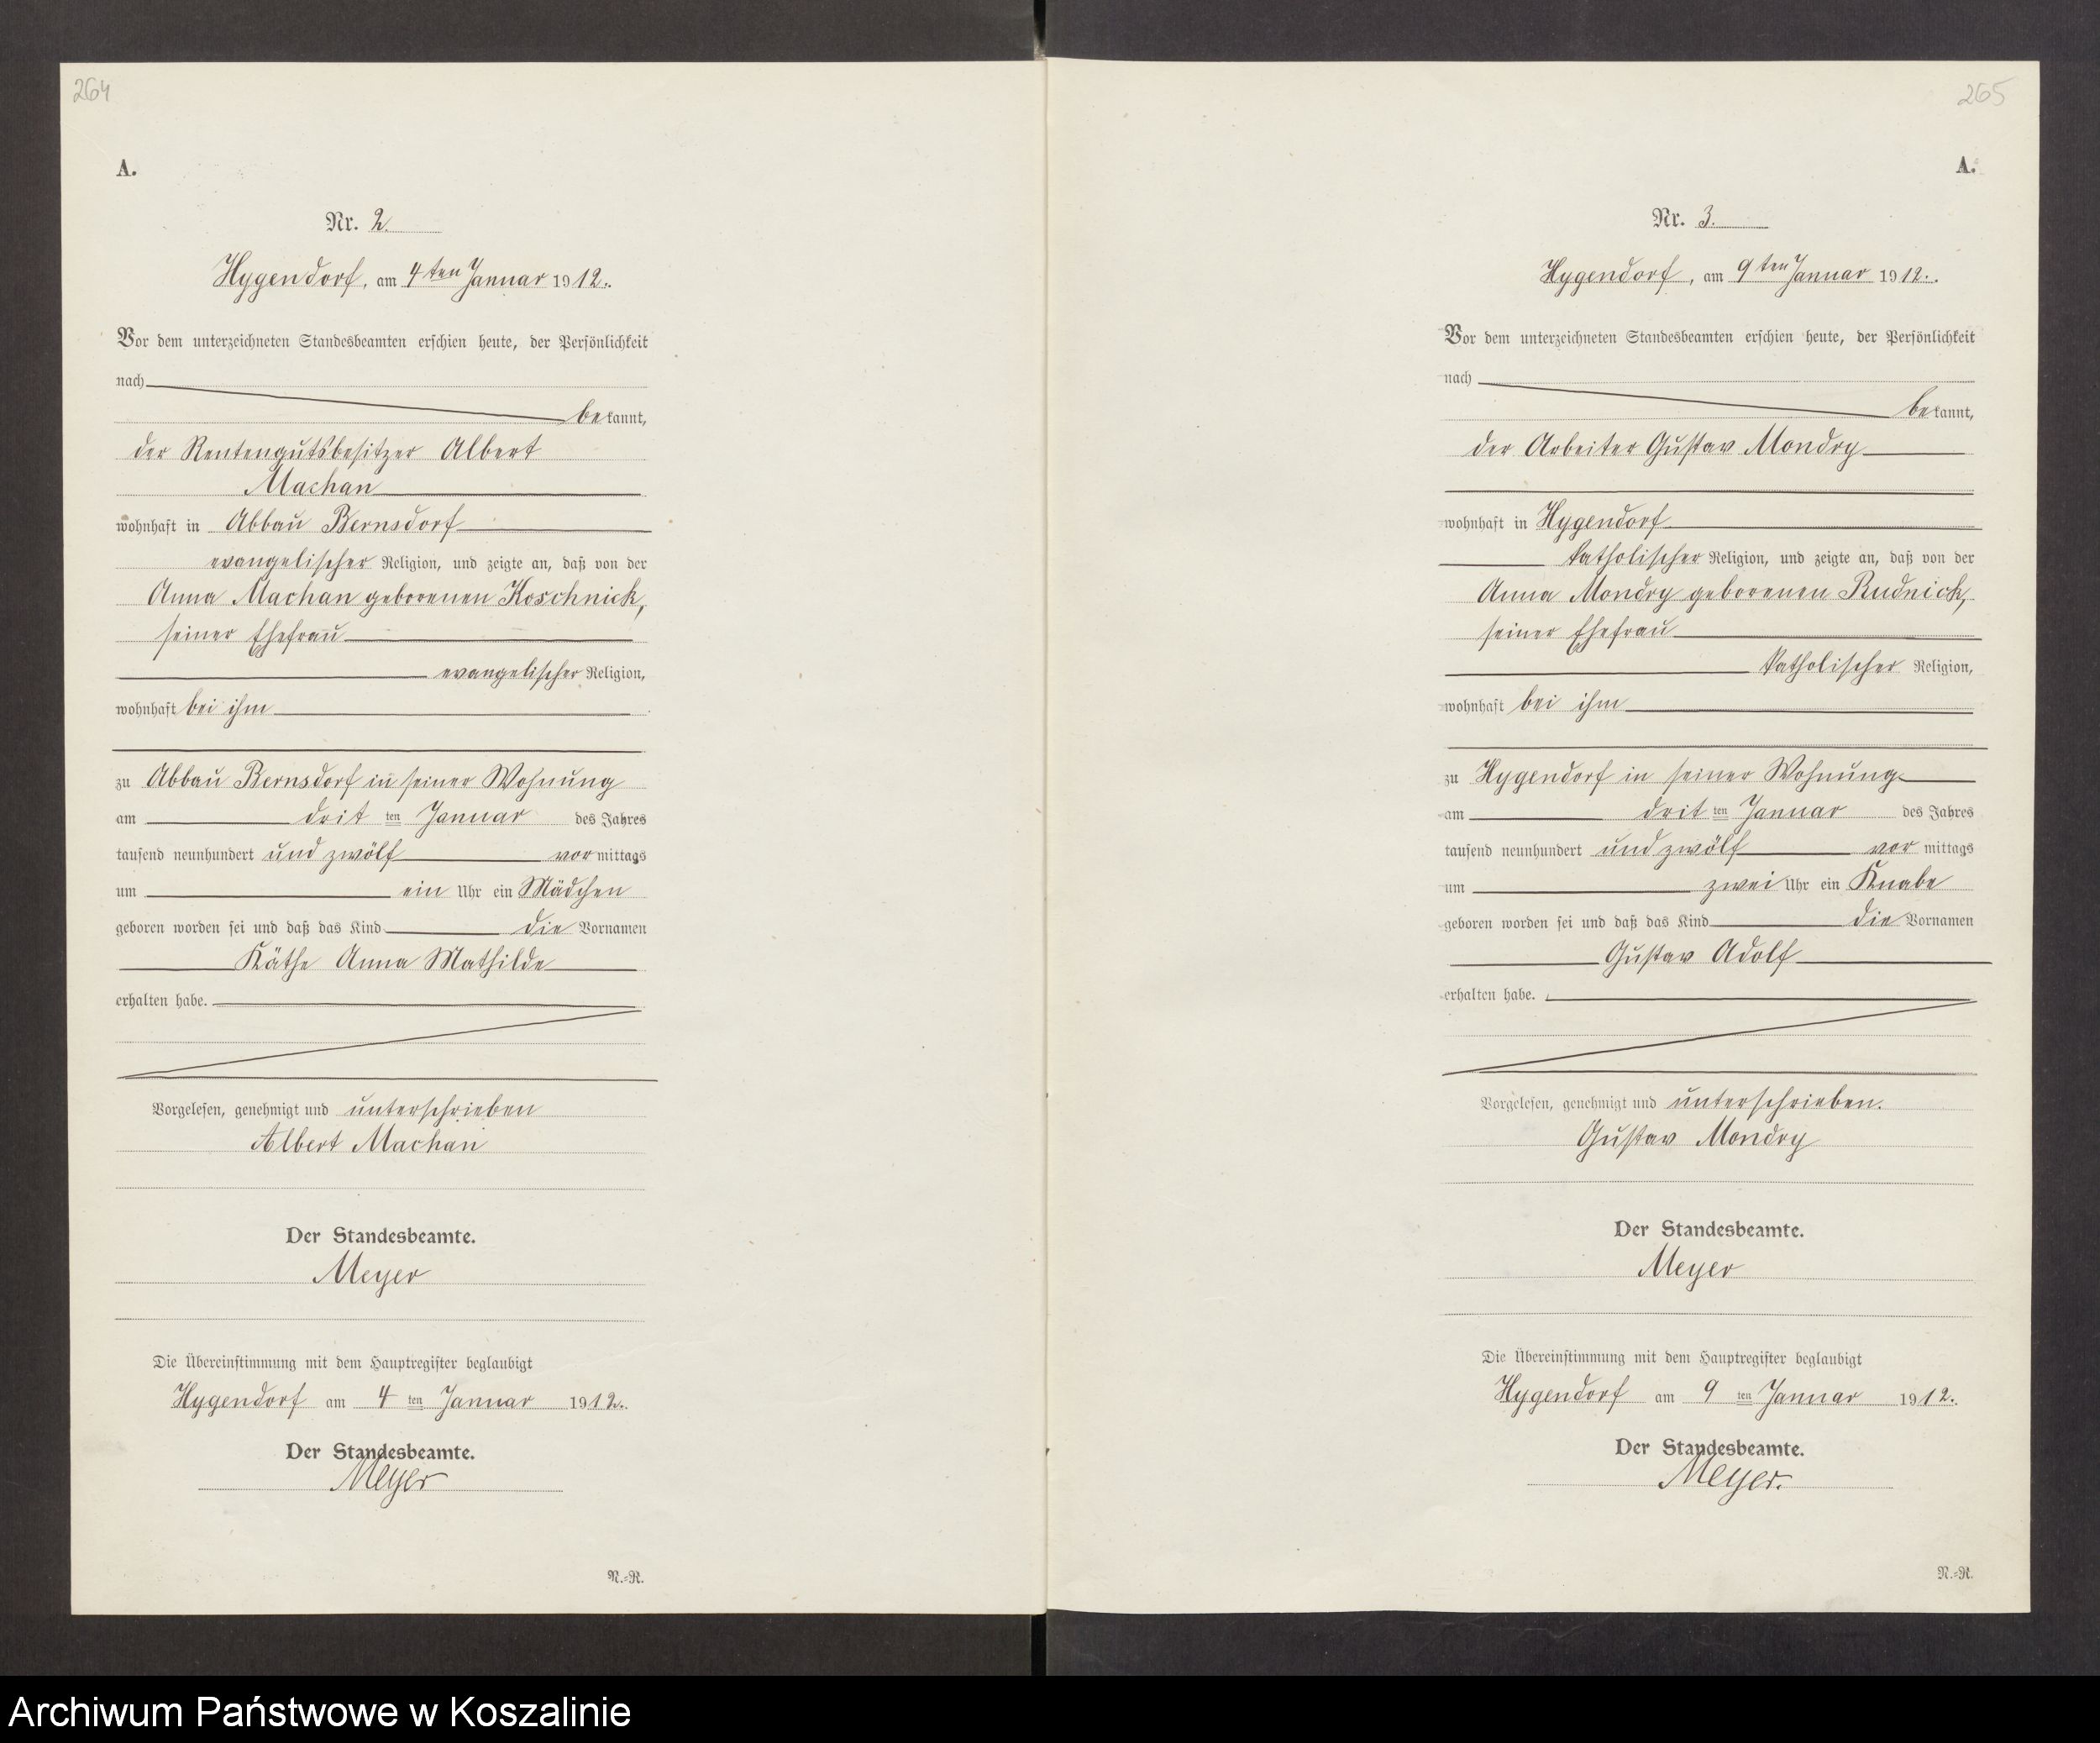 264
A.
Nr. 2.
Hygendorf, am 4ten Januar 1912.
Vor dem unterzeichneten Standesbeamten erschien heute, der Persönlichkeit
nach
bekannt,
der Rentengutsbesitzer Albert
Machan
wohnhaft in Abbau Bernsdorf
evangelischer Religion, und zeigte an, daß von der
Anna Machan geborenen Koschnick,
seiner Ehefrau
evangelischer Religion,
wohnhaft bei ihm
zu Abbau Bernsdorf in seiner Wohnung
am drit ten Januar des Jahres
tausend neunhundert und zwölf vormittags
um ein Uhr ein Mädchen
geboren worden sei und daß das Kind die Vornamen
Käthe Anna Mathilde
erhalten habe.
Vorgelesen, genehmigt und unterschrieben
Albert Machan
Der Standesbeamte.
Meyer
Die Übereinstimmung mit dem Hauptregister beglaubigt
Hygendorf am 4 ten Januar 1912.
Der Standesbeamte.
Meyer
N.=R.
265
A.
Nr. 3.
Hygendorf, am 9ten Januar 1912.
Vor dem unterzeichneten Standesbeamten erschien heute, der Persönlichkeit
nach
bekannt,
der Arbeiter Gustav Mondry
wohnhaft in Hygendorf
katholischer Religion, und zeigte an, daß von der
Anna Mondry geborenen Rudnick,
seiner Ehefrau
katholischer Religion,
wohnhaft bei ihm
zu Hygendorf in seiner Wohnung
am drit ten Januar des Jahres
tausend neunhundert und zwölf vor mittags
um zwei Uhr ein Knabe
geboren worden sei und daß das Kind die Vornamen
Gustav Adolf
erhalten habe.
Vorgelesen, genehmigt und unterschrieben.
Gustav Mondry
Der Standesbeamte.
Meyer
Die Übereinstimmung mit dem Hauptregister beglaubigt
Hygendorf am 9 ten Januar 1912.
Der Standesbeamte.
Meyer.
N.=R.
Archiwum Państwowe w Koszalinie